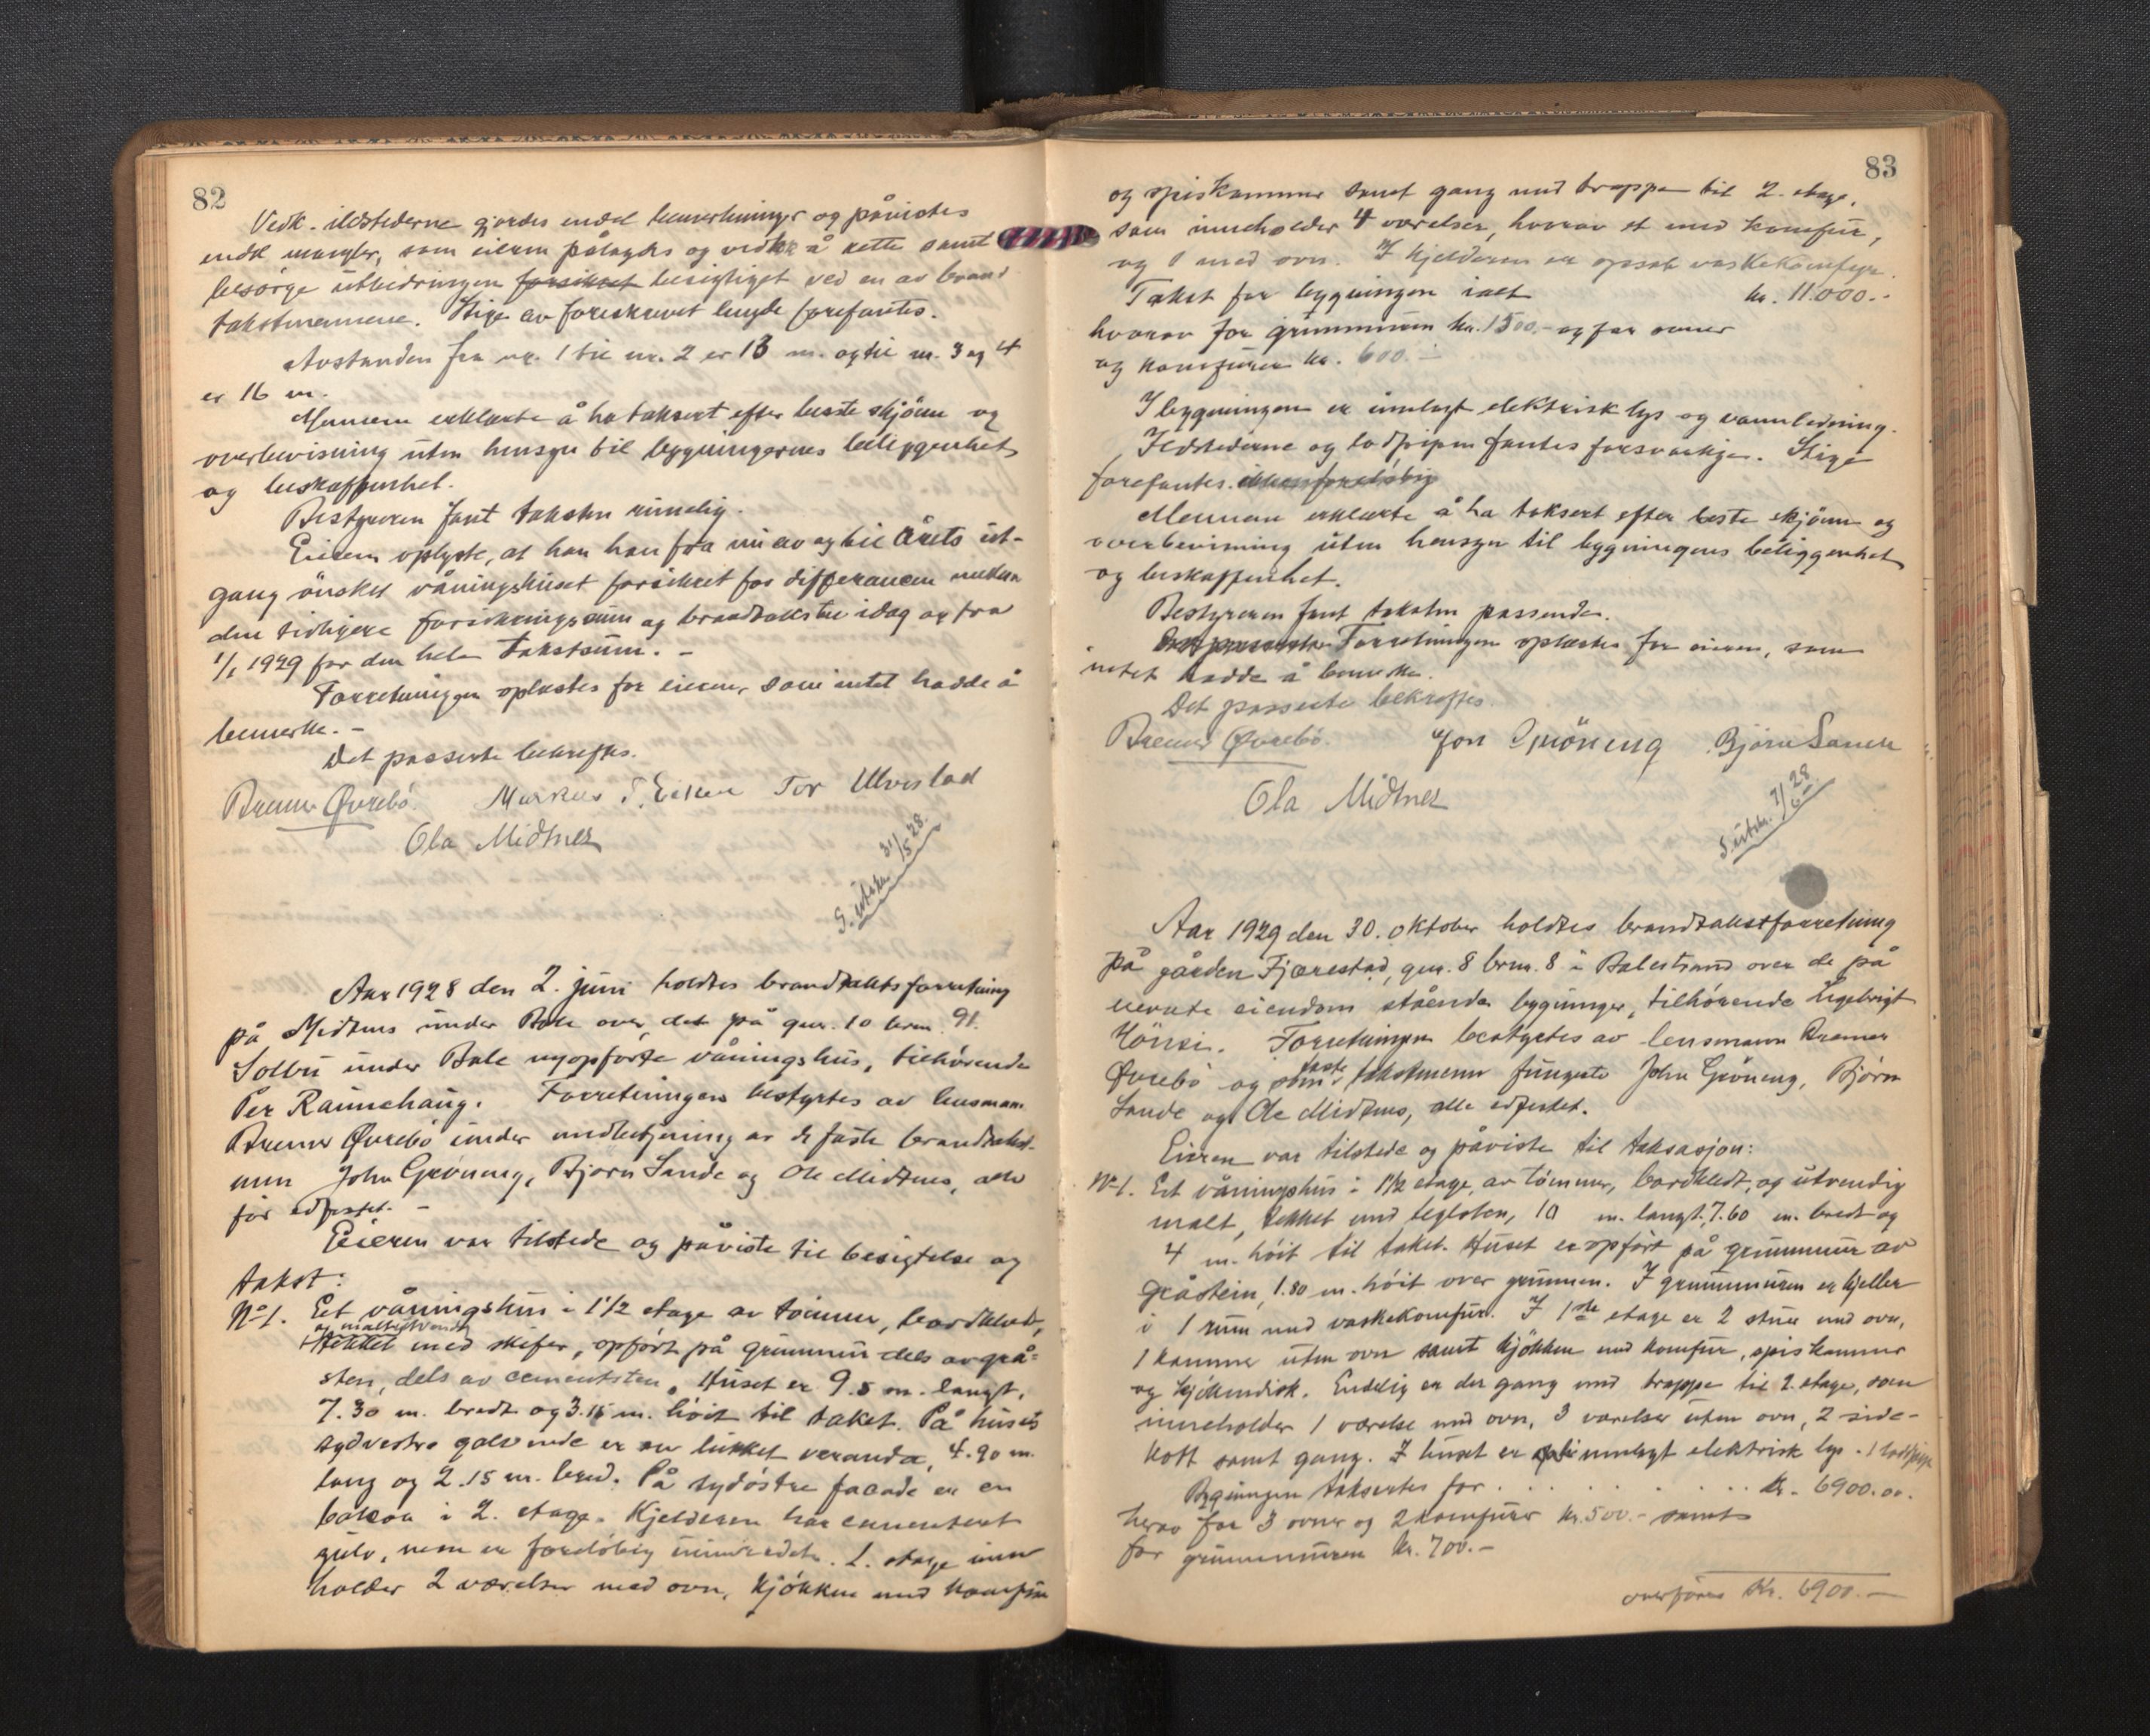 82
Vedk. ildstederne gjordes endel bemerkninger og påvistes
endel mangler, som eieren pålagdes og vedtok å rette samt
besørge utbedringen forsikret besigtiget ved en av brand
takstmennene. Stige av foreskrevet lengde forefantes.
Avstanden fra nr. 1 til nr. 2 er 13 m. og til nr. 3 og 4
er 16 m.
Mennene erklærte å ha taksert efter beste skjönn og
overbevisning uten hensyn til bygningernes beliggenhet
og beskaffenhet.
Bestyreren fant taksten rimelig.
Eieren oplyste, at han fra nu av og til årets ut-
gang önsket våningshuset forsikret for differancen mellem
den tidligere forsikringssum og brandtaksten idag og fra
1/1 1929 for den hele takstsum. -
Forretningen oplæstes for eieren, som intet hadde å
bemerke. -
Det passerte bekreftes.
Bremer Øvrebö. Markus T. Eiken Tor Ulvestad
Ola Midtnes
S. utskr. 31/5 28.
Aar 1928 den 2. juni holdtes brandtakstforretning
på Midtnes under Bale over det på gnr. 10 brnr. 91.
Solbu under Bale nyopførte våningshus, tilhörende
Per Raunehaug. Forretningen bestyrtes av lensmann
Bremer Øvrebö under medbetjening av de faste brandtakst-
menn John Gröneng, Björn Sande og Ole Midtnes, alle
för edfestet. -
Eieren var tilstede og påviste til besigtelse og
takst:
No 1. Eet våningshus i 1 1/2 etage av tömmer, bordklædt,
og malt utvendig
tekket med skifer, opfört på grunnmur dels av grå-
sten, dels av cementsten. Huset er 9.5 m. langt,
7.30 m. bredt og 3.15 m. höit til taket. På husets
sydvestre gavlende er en lukket veranda, 4.90 m.
lang og 2.15 m. bred. På sydöstre facade er en
balkon i 2. etage. Kjelderen har cementert
gulv, men er foreløbig uinnredet. 1. etage inne
holder 2 værelser med ovn, kjökken med komfür
83
og spiskammer samt gang med trappe til 2. etage,
som inneholder 4 værelser, hvorav et med komfür,
og 1 med ovn. I kjelderen er opsatt vaskekomfyr.
Takst for bygningen ialt kr. 11.000.-
hvorav for grunnmuren kr. 1500.- og for ovner
og komfürer kr. 600.-
I bygningen er innlagt elektrisk lys og vannledning.
Ildstederne og lodpipen fantes forsvarlige. Stige
forefantes.
Mennene erklærte å ha taksert efter beste skjönn og
overbevisning uten hensyn til bygningens beliggenhet
og beskaffenhet.
Bestyreren fant taksten passende.
Det passerte Forretningen oplæstes for eieren, som
intet hadde å bemerke.
Det passerte bekreftes.
Bremer Øvrebö. Jon Gröneng Björn Sande
Ola Midtnes
S. utskr. 7/6 28.
Aar 1929 den 30. oktober holdtes brandtakstforretning
på gården Fjærestad, gnr. 8 brnr. 8 i Balestrand over de på
nevnte eiendom stående bygninger, tilhörende Ingebrigt
Hönsi. Forretningen bestyrtes av lensmann Bremer
faste
Øvrebö og som takstmenn fungerte John Gröneng, Björn
Sande og Ole Midtnes, alle edfestet.
Eieren var tilstede og påviste til taksasjon:
No 1. Eet våningshus i 1 1/2 etage, av tömmer, bordkledt, og utvendig
malt, tekket med teglsten, 10 m. langt, 7.60 m. bredt og
4 m. höit til taket. Huset er opfört på grunnmur av
gråstein, 1.80 m. höit over grunnen. I grunnmuren er kjeller
i 1 rum med vaskekomfür. I 1ste etage er 2 stuer med ovn,
1 kammer uten ovn samt kjökken med komfür, spiskammer
og kjökkendisk. Endelig er der gang med trappe til 2. etage, som
inneholder 1 værelse med ovn, 3 værelser uten ovn, 2 side-
kott samt gang. I huset er innlagt elektrisk lys. 1 lodpipe
Bygningen takseres for . . . . . . . . kr. 6900.00.
herav for 3 ovner og 2 komfürer kr. 500.- samt
for grunnmuren kr. 700.-
overføres kr. 6900.-